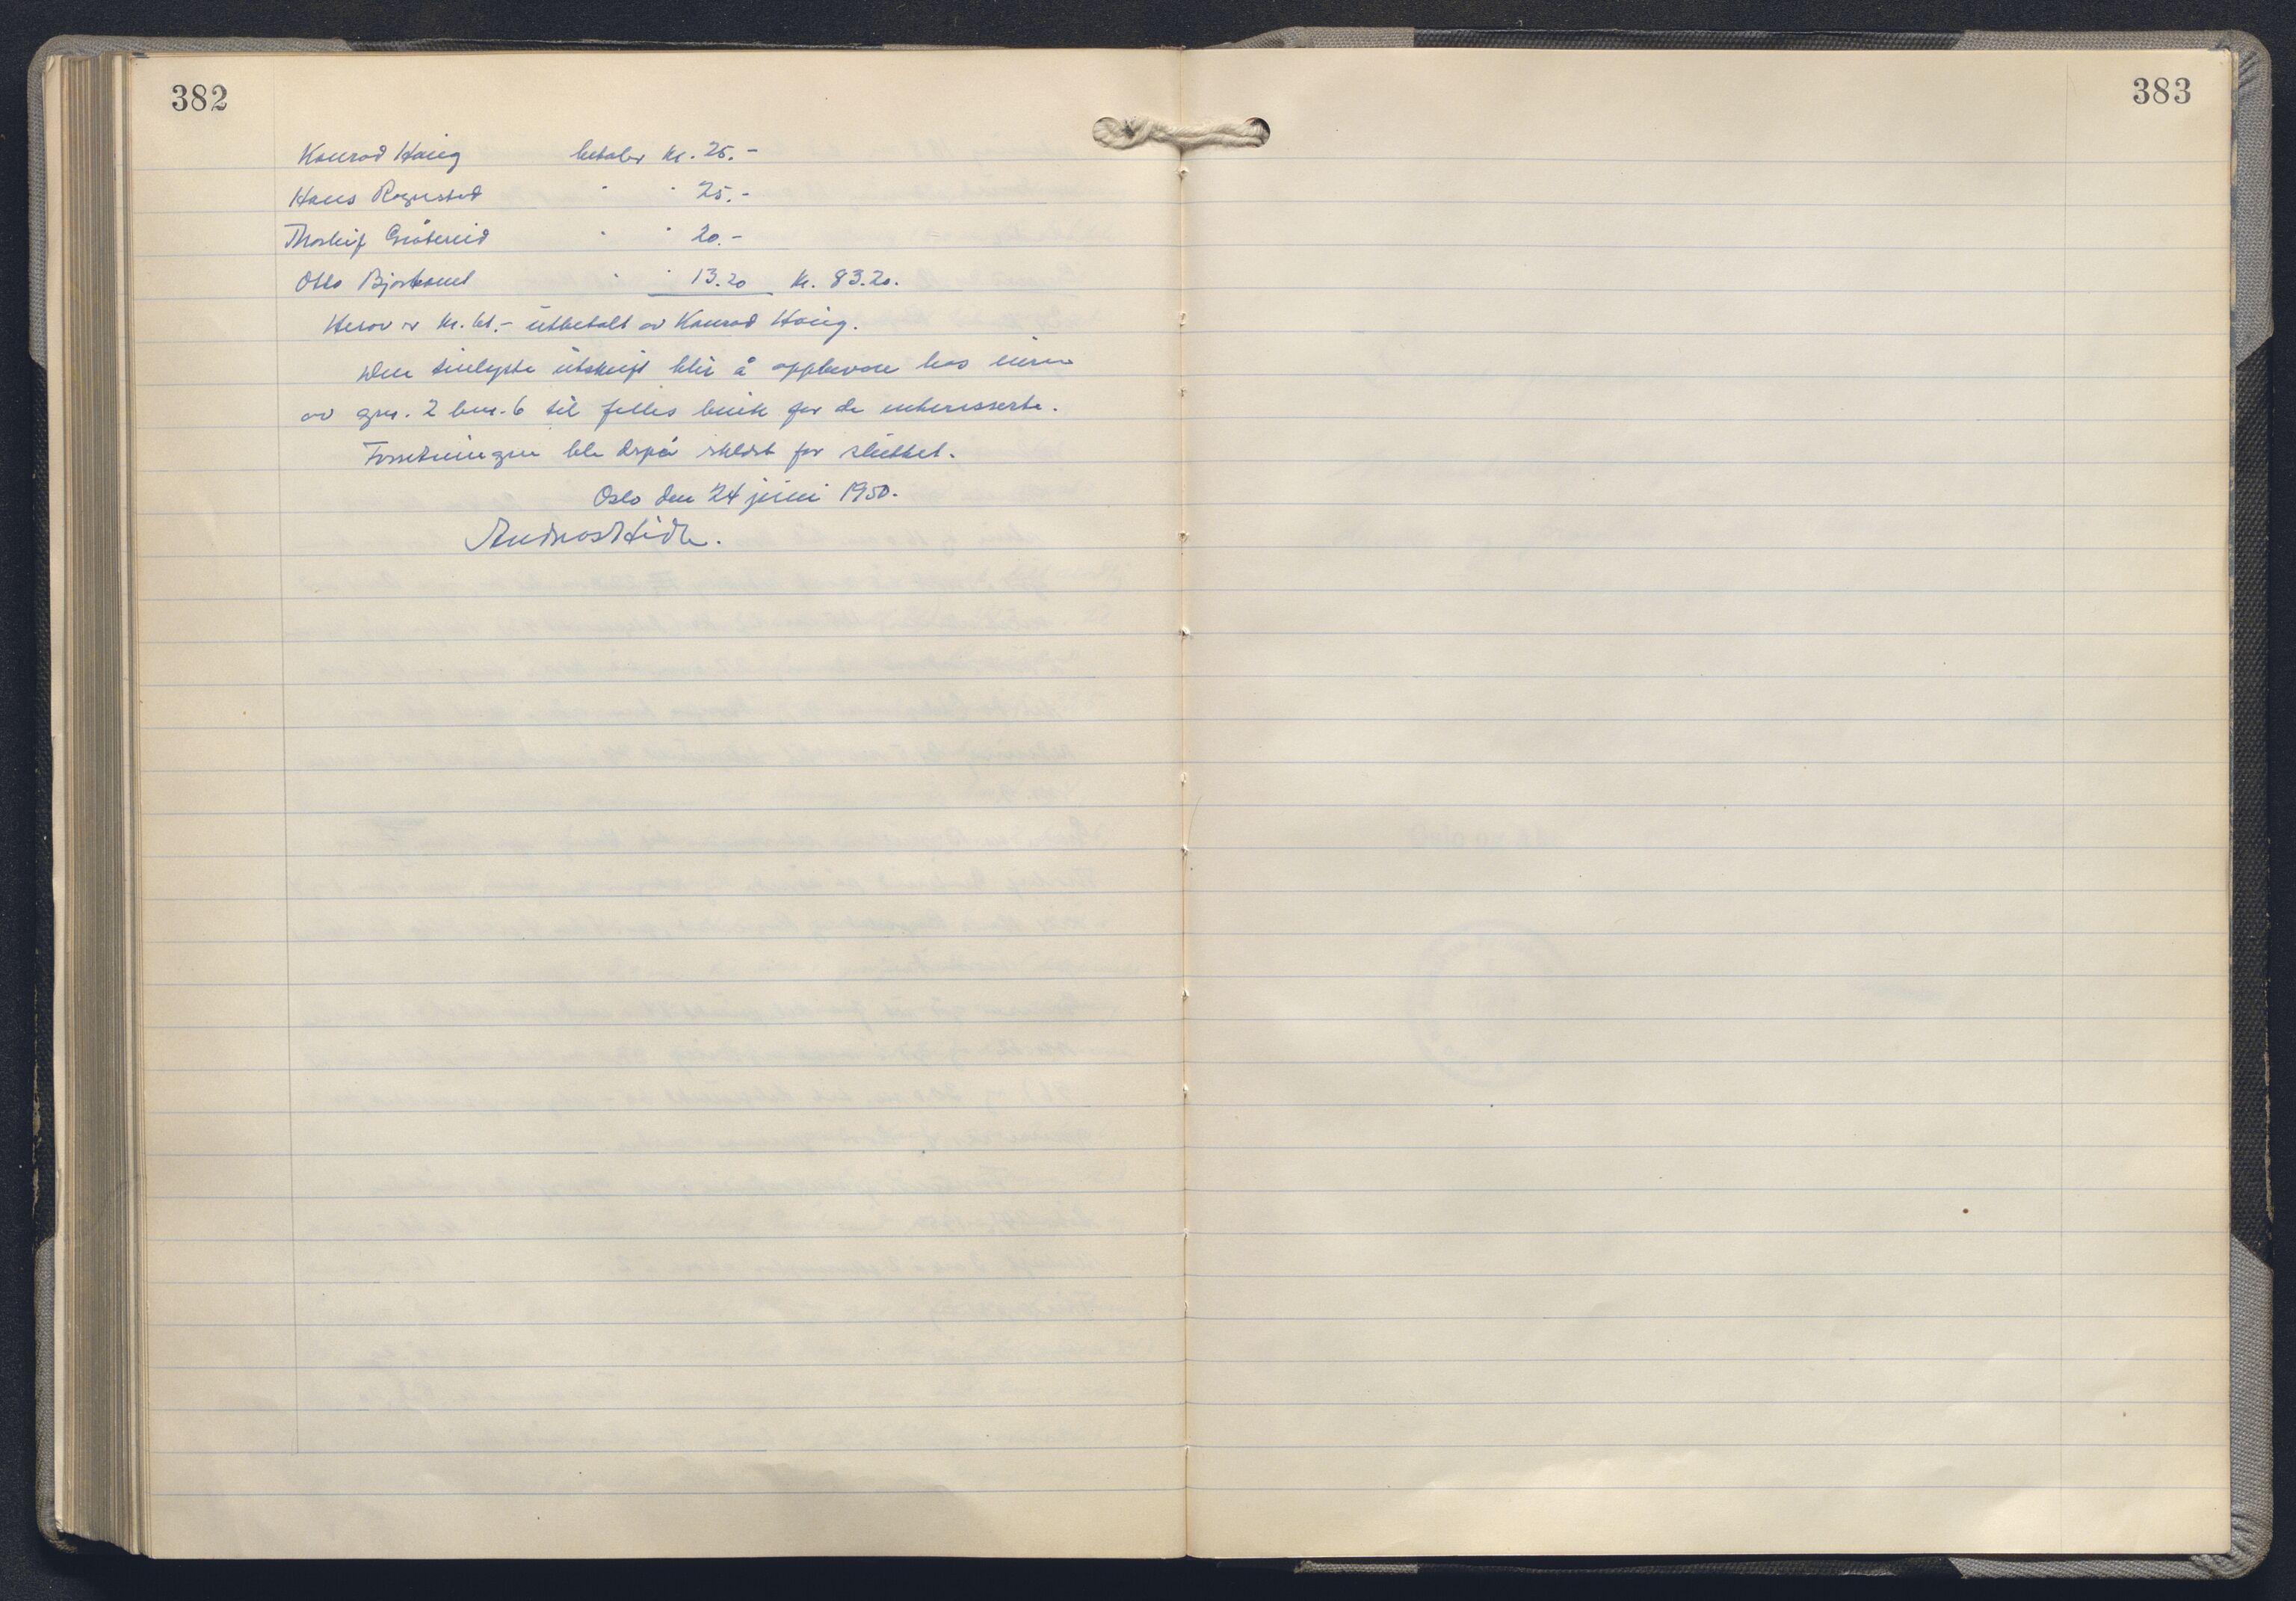 382
383
Konrad Haug betaler kr. 25.-
Hans Rognstad " " 25.-
Thorleif " " 20.-
Otto " " 13.20 kr. 83.20.
Herav er kr. utbetalt av Konrad Haug.
Den tinlyste utskrift blir å oppbevare hos eieren
av gnr. 2 bnr. 6 til felles bruk for de interesserte.
Forretningen ble derpå erklært for sluttet.
Oslo den 24 juni 1950.